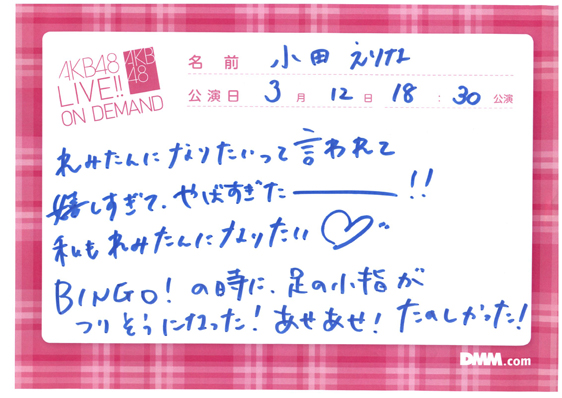 AKB48
LIVE!!
ON DEMAND
AKB
48
名前 小田えりな
公演日 3月12日 18:30公演
れみたんになりたいって言われて
嬉しすぎて、やばすぎたーーー!!
私もれみたんになりたい♡
BINGO!の時に、足の小指が
つりそうになった!あせあせ!たのしかった!
DMM.com